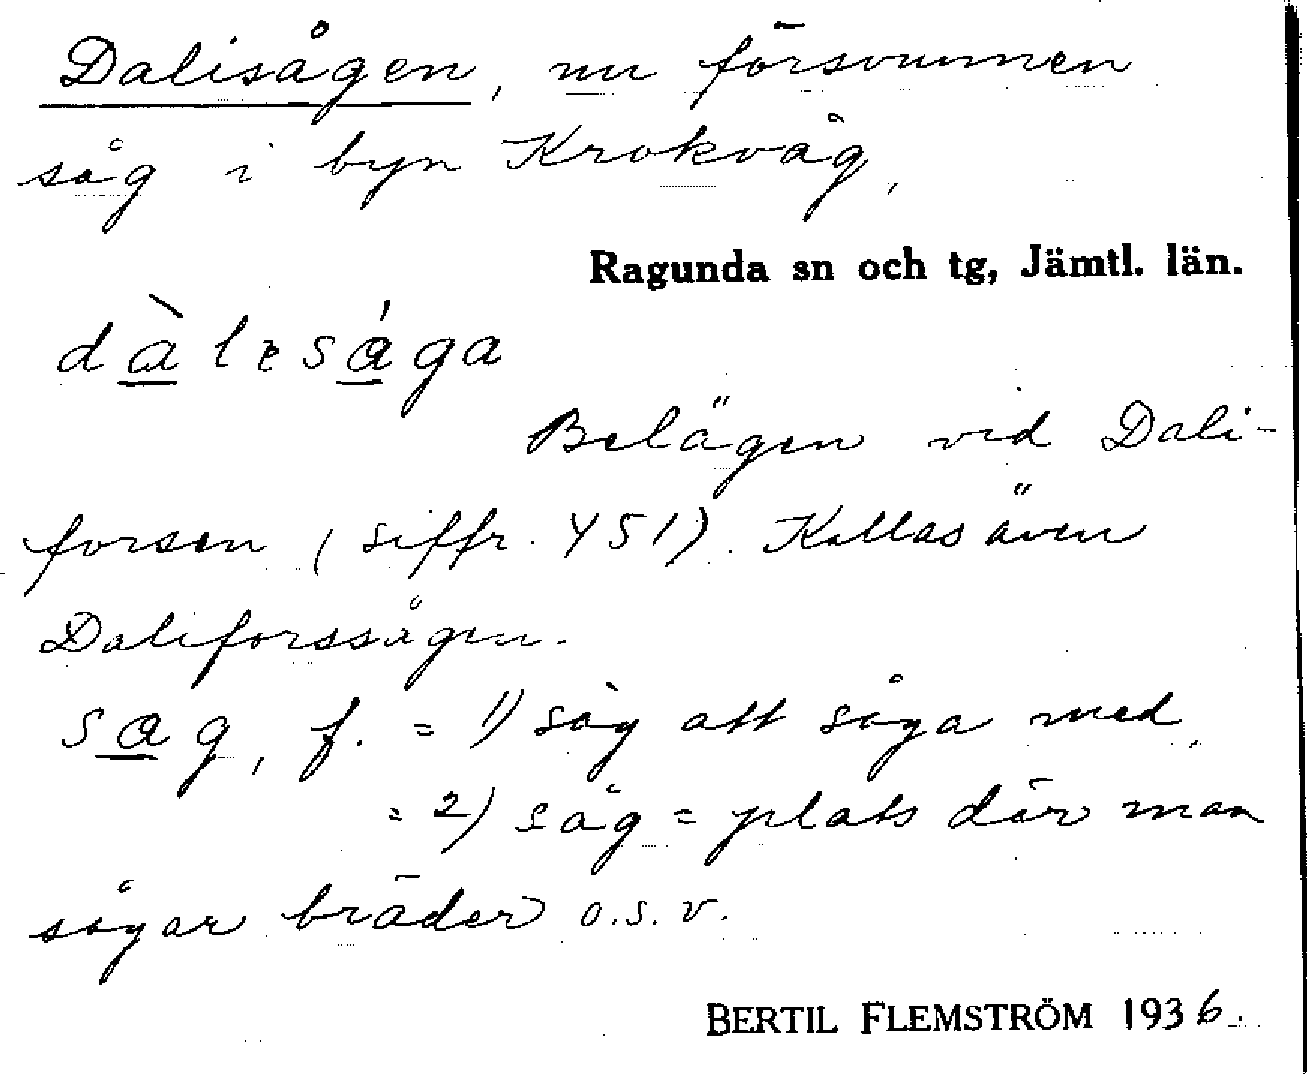 Dalisågen, nu försvunnen
såg i byn Krokvåg,
Ragunda sn och tg, Jämtl. län.
dàlesága
Belägen vid Dali-
forsen (siffr. 451). Kallas även
Daliforssågen.
sag, f. = 1) såg att såga med,
= 2) såg = plats där man
sågar bräder o.s.v.
BERTIL FLEMSTRÖM 1936.